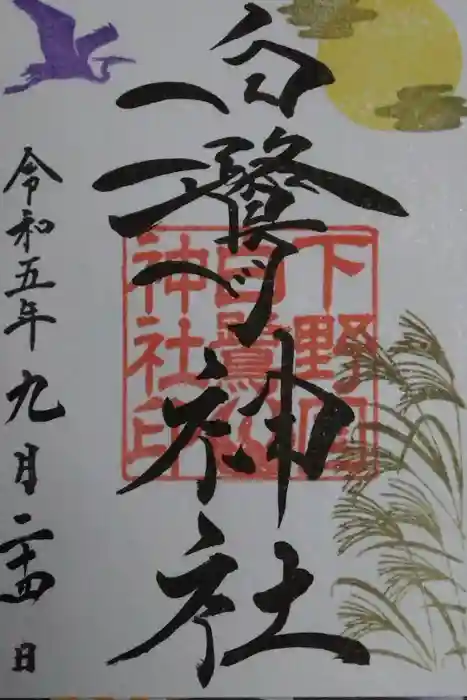 白鷺神社
下野国
白鷺山
神社印
令和五年九月二十四日